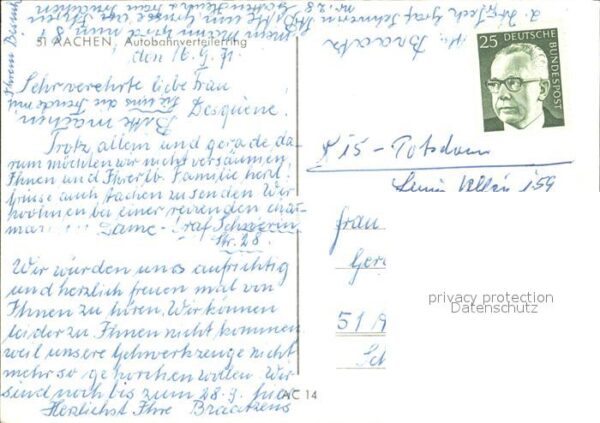 51 AACHEN, Autobahnverteilerring
den 16.9.71.
Sehr verehrte liebe Frau
Desquiene.
Bitte machen
Sie uns die Freude mit
Ihrem Besuch
Trotz allem und gerade da-
rum möchten wir nicht versäumen,
Ihnen und Ihrer lb. Familie herzl.
Grüsse aus Aachen zu senden. Wir
wohnen bei einer reizenden char-
man Dame - Graf Schwerin
Str. 28.
Wir würden uns aufrichtig
und herzlich freuen mal von
Ihnen zu hören. Wir können
leider zu Ihnen nicht kommen
weil unsere Gehwerkzeuge nicht
mehr so gehorchen wollen. Wir
sind noch bis zum 28.9. hier
Herzlichst Ihre Braatzens
AC 14
Braatz
Graf Schwerin
nr. 28
25
DEUTSCHE
BUNDESPOST
X 15 - Potsdam
Lenin Allee 154
Frau
51 A
privacy protection
Datenschutz